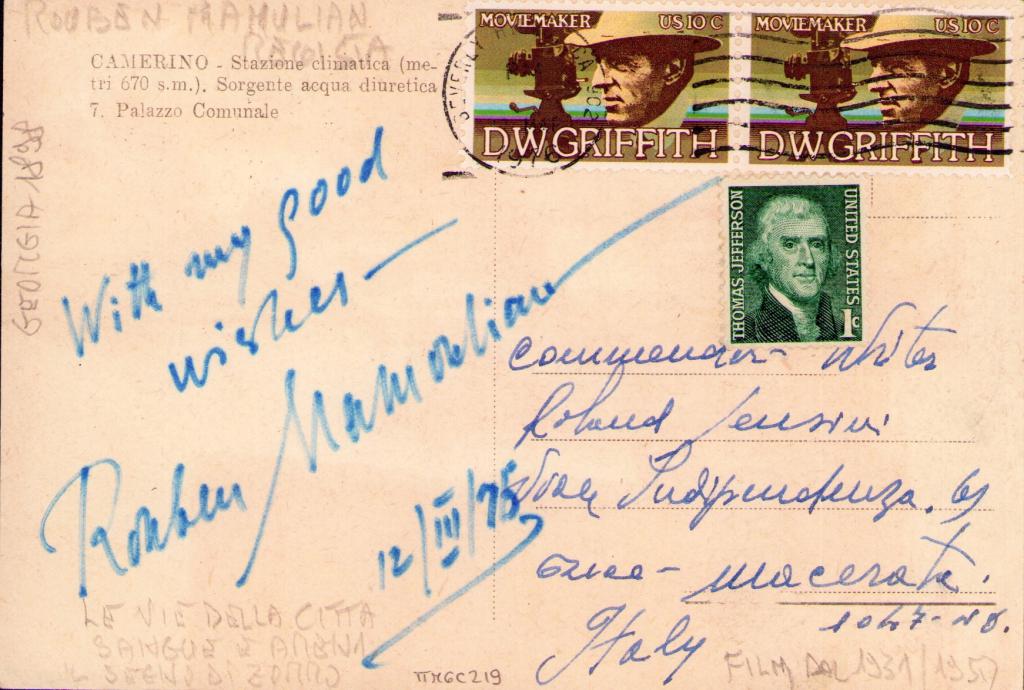 ROUBEN MAMULIAN
REGISTA
CAMERINO - Stazione climatica (me-
tri 670 s.m.). Sorgente acqua diuretica
7. Palazzo Comunale
GEORGIA 1898
MOVIEMAKER US 10 C
D.W. GRIFFITH
MOVIEMAKER US 10 C
D.W. GRIFFITH
BEVERLY CA
1975
THOMAS JEFFERSON
UNITED STATES
1c
With my good
wishes —
Rouben Mamoulian
12/III/75
Commendor- Writer
Roland Sensini
Viale Indipendenza. 61
62100 - Macerata.
Italy
LE VIE DELLA CITTA
SANGUE E ARENA
IL SEGNO DI ZORRO
FILM DAL 1931/1957
ПМGC219